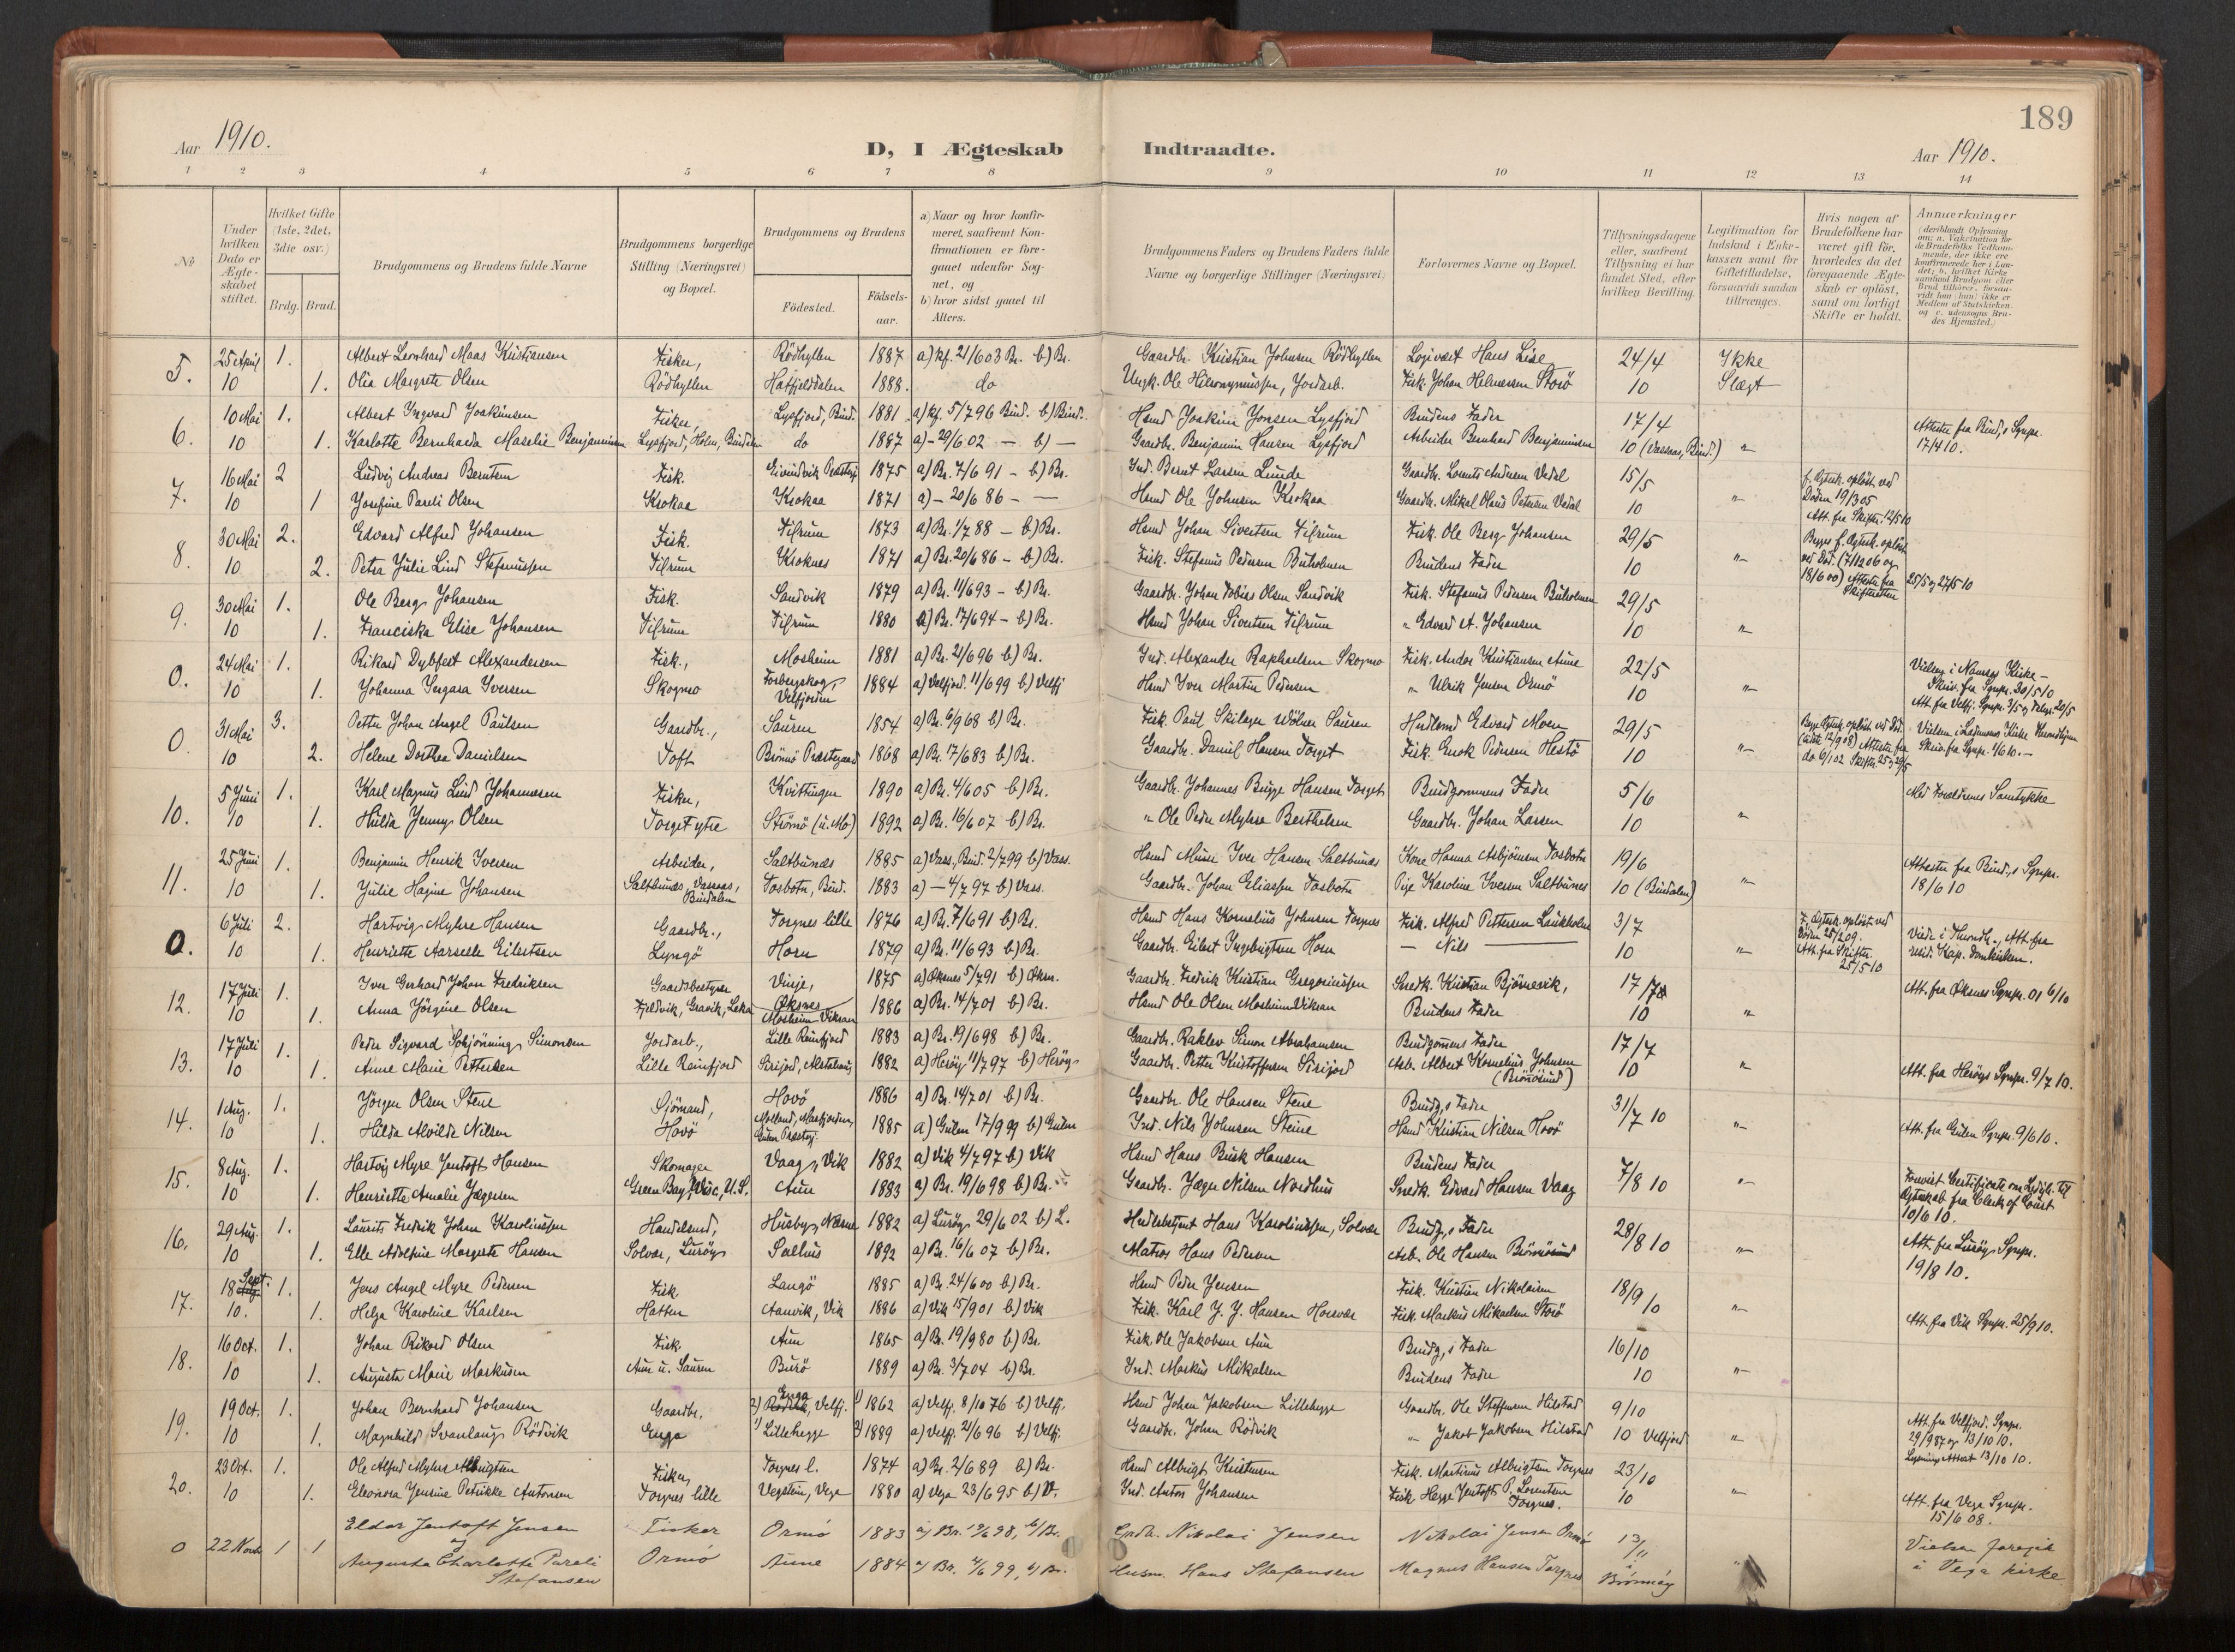 189
Aar 1910.
D, I Ægteskab Indtraadte.
Aar 1910.
1 2 3 4 5 6 7 8 9 10 11 12 13 14
No
Under hvilken Dato er Ægteskabet stiftet.
Hvilket Gifte (1ste, 2det, 3die osv.)
Brdg. Brud.
Brudgommens og Brudens fulde Navne
Brudgommens borgerlige Stilling (Næringsvei) og Bopæl.
Brudgommens og Brudens
Födested.
Födselsaar.
a) Naar og hvor konfirmeret, saafremt Konfirmationen er foregaaet udenfor Sognet, og
b) hvor sidst gaaet til Alters.
Brudgommens Faders og Brudens Faders fulde Navne og borgerlige Stillinger (Næringsvei)
Forlovernes Navne og Bopæl.
Tillysningsdagene eller, saafremt Tillysning ei har fundet Sted, efter hvilken Bevilling.
Legitimation for Indskud i Enkekassen samt for Giftetilladelse, forsaavidt saadan tiltrænges.
Hvis nogen af Brudefolkene har været gift för, hvorledes da det foregaaende Ægteskab er oplöst, samt om lovligt Skifte er holdt.
Anmærkninger (deriblandt Oplysning om: a. Vaccination for de Brudefolks Vedkommende, der ikke ere konfirmerede her i Landet; b. hvilket Kirkesamfund Brudgom eller Brud tilhörer, forsaavidt han (hun) ikke er Medlem af Statskirken, og c. udensogns Brudes Hjemsted.)
5. 25 April 1. Albert Leonhard Maas Kristiansen Fisker, Rödhyllen 1887 a) kf. 21/6 03 Br. b) Br. Gaardbr. Kristian Johnsen Rödhyllen Logivært Hans Lise 24/4 Ikke
10 1. Olia Margrete Olsen Rödhyllen Hatfjelddalen 1888. do Ungk. Ole Hieronymussen, Jordarb. Fisk. Johan Helmersen Storö 10 Slægt
6. 10 Mai 1. Albert Ingvard Joakimsen Fisker, Lysfjord, Bind. 1881 a) kf. 5/7 96 Bind. b) Bind. Hsmd Joakim Jonsen Lysfjord Brudens Fader 17/4 Attester fra Bind,s Sgnpr.
10 1. Karlotte Bernharda Maselie Benjaminsen Lysfjord, Holm, Bindalen do 1887 a) - 29/6 02 - b) - Gaardbr. Benjamin Hansen Lysfjord Arbeider Bernhard Benjaminsen 10 (Vassaas, Bind.) " 17/4 10.
7. 16 Mai 2 Ludvig Andreas Berntsen Fisk. Eivindvik Præstegj 1875 a) Br. 7/6 91 - b) Br. Ind. Bernt Larsen Lunde Gaardbr. Lorents Andersen Vedal 15/5 f. Ægtesk. oplöst ved
10 1 Josefine Pareli Olsen Krokaa Krokaa 1871 a) - 20/6 86 - - Hsmd Ole Johnsen Krokaa Gaardbr. Mikal Olaus Petersen Vedal 10 " Döden 19/3 05
Att. fra Skifter. 12/5 10
8. 30 Mai 2. Edvard Alfred Johansen Fisk. Tilrum 1873 a) Br. 1/7 88 - b) Br. Hsmd Johan Sivertsen Tilrum Fisk. Ole Berg Johansen 29/5 Begges f. Ægtesk. oplöst
10 2. Petra Julie Lind Stefanussen Tilrum Kroknes 1871 a) Br. 20/6 86 - b) Br. Fisk. Stefanus Pedersen Buholmen Brudens Fader 10 " ved Död. (7/12 06 og
18/6 00) Attester fra Skifteretten 25/5 og 27/5 10
9. 30 Mai 1. Ole Berg Johansen Fisk. Sandvik 1879 a) Br. 11/6 93 - b) Br. Gaardbr. Johan Tobias Olsen Sandvik Fisk. Stefanus Pedersen Buholmen 29/5
10 1. Franciska Elise Johansen Tilrum Tilrum 1880 a) Br. 17/6 94 - b) Br. Hsmd Johan Sivertsen Tilrum " Edvard A. Johansen 10 "
0. 24 Mai 1. Rikard Dybfest Alexandersen Fisk., Mosheim 1881 a) Br. 21/6 96 b) Br. Ind. Alexander Raphaelsen Skogmo Fisk. Andor Kristiansen Aune 22/5 Vielsen i Namsos Kirke -
10 1. Johanna Ingara Iversen Skogmo Forbergskog, Velfjorden 1884 a) Velfjord. 11/6 99 b) Velfj Hsmd Iver Martin Pedersen " Ulrik Jensen Ormö 10 " Skriv. fra Sgnpr. 30/5 10
0. 31 Mai 3. Petter Johan Angel Paulsen Gaardbr., Sauren 1854 a) Br. 6/9 68 b) Br. Fisk. Paul Skilagen Wölner Sausen Hndlsmd Edvard Moen 29/5 Vielsen i Lademoens Kirke
10 2. Helene Dorthea Danielsen Toft Brönnö Præstegaard 1868 a) Br. 17/6 83 b) Br. Gaardbr. Daniel Hansen Torget Fisk. Enok Pedersen Hestö 10 " Skriv. fra Sgnpr. 1/6 10. -
10. 5 Juni 1. Karl Magnus Lind Johannesen Fisker, Kvittingen 1890 a) Br. 4/6 05 b) Br. Gaardbr. Johannes Bugge Hansen Torget Brudgommens Fader 5/6 Med Forældrenes Samtykke
10 1. Hulda Jenny Olsen Torget ytre Strömö (u. Mo) 1892 a) Br. 16/6 07 b) Br. " Ole Peder Myhre Berthelsen Gaardbr. Johan Larsen 10 "
11. 25 Juni 1. Benjamin Henrik Iversen Arbeider, Saltbunes 1885 a) Vass., Bind. 2/7 99 b) Vass. Hsmd Murer Iver Hansen Saltbunes Kone Hanna Asbjörnsen Tosbotn 19/6 Attester fra Bind,s Sgnpr.
10 1. Julie Hagine Johansen Saltbunes, Vassaas, Bindalen Tosbotn, Bind. 1883 a) - 4/7 97 b) Vass. Gaardbr. Johan Eliassen Tosbotn Pige Karoline Iversen Saltbunes 10 (Bindalen) " 18/6 10
0. 6 Juli 2. Hartvig Myhre Hansen Gaardbr., Torgnes lille 1876 a) Br. 7/6 91 b) Br. Hsmd Hans Kornelius Johnsen Torgnes Fisk. Alfred Pettersen Laukholm 3/7 F. Ægtesk. oplöst ved Döden 25/2 09. Viede i Trondh., Att. fra
10 1. Henriette Aarselle Eilertsen Lyngö Horn 1879 a) Br. 11/6 93 b) Br. Gaardbr. Eilert Ingebrigtsen Horn - Nils - 10 " Att. fra Skifter. 25/5 10 resid. Kap. Domkirken.
12. 17 Juli 1. Iver Gerhard Johan Fredriksen Gaardsbestyrer Vinje, Öksnes 1875 a) Öksnes 5/7 91 b) Öksn. Gaardbr. Fredrik Kristian Gregoriussen Snedk. Kristian Bjørnesvik, 17/7 Att. fra Öksnes Sgnpr.
10 1. Anna Jörgine Olsen Fjeldvik, Gravik, Leka Mosheim Vikran 1886 a) Br. 14/7 01 b) Br. Hsmd Ole Olsen Mosheim Vikran Brudens Fader 10 "
13. 17 Juli 1. Peder Sigvard Schjönning Simonsen Jordarb., Lille Reinfjord 1883 a) Br. 19/6 98 b) Br. Gaardbr. Raklev Simon Abrahamsen Brudgomens Fader 17/7
10 1. Anne Marie Pettersen Lille Reinfjord Sirijord, Alstahaug 1882 a) Heröy 11/7 97 b) Heröy Gaardbr. Petter Kristoffersen Sirijord Arb. Albert Kornelius Johnsen (Brönösund) 10 " Att. fra Heröys Sgnpr. 9/7 10.
14. 1 Aug. 1. Jörgen Olsen Stene Sjömand, Hovö 1886 a) Br. 14/7 01 b) Br. Gaardbr. Ole Hansen Stene Brudg,s Fader 31/7 10
10 1. Hilda Alvilde Nilsen Hovö Gulen Præstegj. 1885 a) Gulen 17/9 99 b) Gulen Ind. Nils Johnsen Steine Hsmd Kristian Nilsen Hovö " Att. fra Gulen Sgnpr. 9/6 10.
15. 8 Aug. 1. Hartvig Myre Jentoft Hansen Skomager Vaag, Vik 1882 a) Vik 4/7 97 b) Vik Hsmd Hans Busk Hansen Brudens Fader 7/8 10 Forevist Certificate om Ledigh. til
10 1. Henriette Amalie Jægersen Green Bay, Wisc., U.S. Aun 1883 a) Br. 19/6 98 b) Br. Gaardbr. Jæger Nilsen Nordhus Snedk. Edvard Hansen Vaag " Ægteskab fra Clerk of Court 10/6 10.
16. 29 Aug. 1. Laurits Fredrik Johan Karoliussen Handelsmd, Husby, Næsne 1882 a) Luröy 29/6 02 b) L. Hndlsbetjent Hans Karoliussen, Solvær Brudg,s Fader 28/8 10 Att. fra Luröy Sgnpr.
10 1. Elle Adolfine Margrete Hansen Solvær, Luröy Salhus 1892 a) Br. 16/6 07 b) Br. Matros Hans Pedersen Arb. Ole Hansen Brönnösund " 19/8 10.
17. 18 Sept. 1. Jens Angel Myre Pedersen Fisk Langö 1885 a) Br. 24/6 00 b) Br. Hsmd Peder Jensen Fisk. Kristian Nikolaisen 18/9 10
10. 1. Helga Karoline Karlsen Hatten Aanvik, Vik 1886 a) Vik 15/9 01 b) Vik Fisk. Karl J. J. Hansen Horsvær Fisk. Markus Mikaelsen Storö " Att. fra Vik Sgnpr. 25/9 10.
18. 16 Oct. 1. Johan Rikard Olsen Fisk. Aun 1865 a) Br. 19/9 80 b) Br. Fisk. Ole Jakobsen Aun Brudg,s Fader 16/10
10 1. Augusta Marie Markusen Aun u. Sauren Burö 1889 a) Br. 3/7 04 b) Br. Ind. Markus Mikalsen Brudens Fader 10 "
19. 19 Oct. 1. Johan Bernhard Johansen Gaardbr. 2) Enga, Velfj. 1) 1862 a) Velfj. 8/10 76 b) Velfj. Hsmd Johan Jakobsen Lillehegge Gaardbr. Ole Steffensen Hilstad 9/10 Att. fra Velfjord. Sgnpr.
10 1. Magnhild Svanlaug Rödvik Enga 1) Lillehegge 2) 1889 a) Velfj. 21/6 96 b) Velfj. Gaardbr. Johan Rödvik " Jakob Jakobsen Hilstad 10 Velfjord " 29/9 87 og 13/10 10.
Lysnings Attest 13/10 10.
20. 23 Oct. 1. Ole Alfred Myhre Albrigtsen Fisker, Torgnes l. 1874 a) Br. 2/6 89 b) Br. Hsmd Albrigt Kristensen Fisk. Martinus Albrigtsen Torgnes 23/10
10 1. Eleonora Jensine Petrikke Antonsen Torgnes lille Vegstein, Vega 1880 a) Vega 23/6 95 b) V. Ind. Anton Johansen Fisk. Hegge Jentoft P. Lorentsen Torgnes. 10 " Att. fra Vega Sgnpr. 15/6 08.
0 22 Novb 1 1 Eldor Jentoft Jensen Fisker Ormö 1883 Gaardbr. Nikolai Jensen Nikolai Jensen Ormö 13/11 Vielsen foregik
og Augusta Charlotte Pareli Stefansen Ormö Aune 1884 Husm. Hans Stefansen Magnus Hansen Torgnes i Brönnöy " i Vega kirke